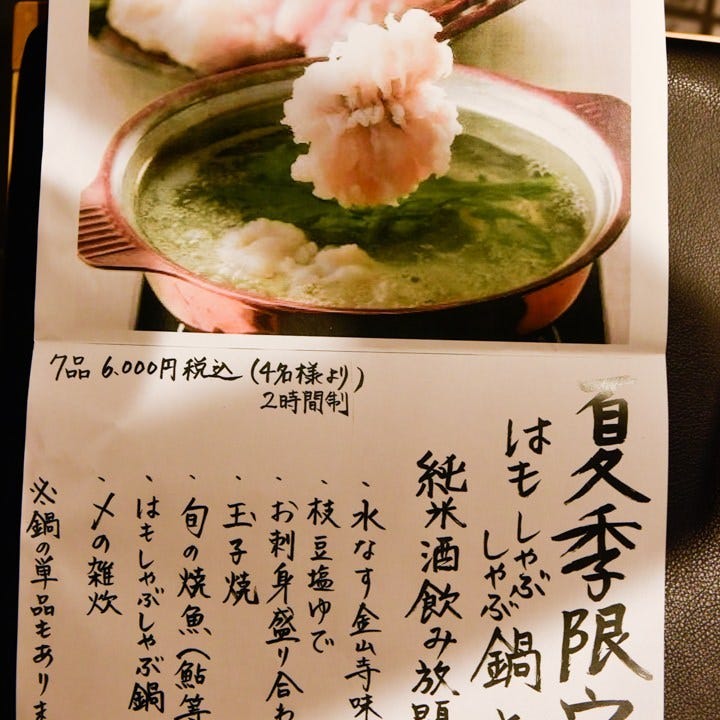 7品 6,000円税込 (4名様より)
2時間制
夏季限定
はもしゃぶしゃぶ鍋と
純米酒飲み放題
・水なす金山寺味
・枝豆塩ゆで
・お刺身盛り合わ
・玉子焼
・旬の焼魚(鮎等
・はもしゃぶしゃぶ鍋
・〆の雑炊
※鍋の単品もありま